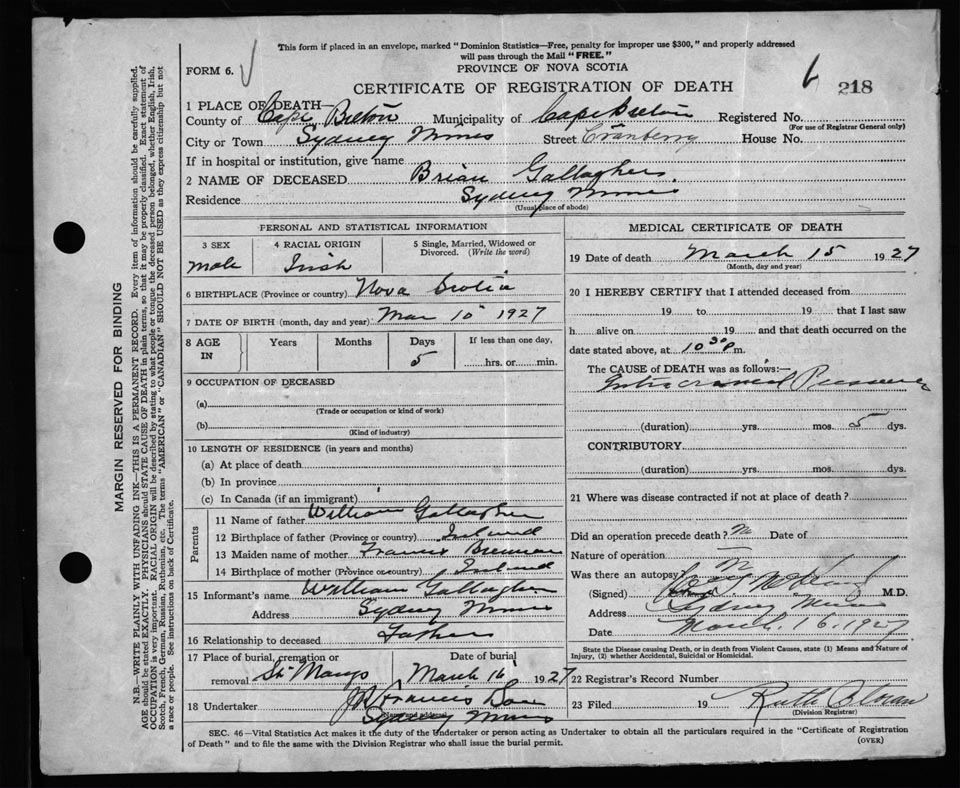 This form if placed in an envelope, marked "Dominion Statistics—Free, penalty for improper use $300," and properly addressed
will pass through the Mail "FREE."
FORM 6.
PROVINCE OF NOVA SCOTIA
6 218
CERTIFICATE OF REGISTRATION OF DEATH
1 PLACE OF DEATH—
County of Cape Breton Municipality of Cape Breton Registered No.
(For use of Registrar General only)
City or Town Sydney Mines Street Cranberry House No.
If in hospital or institution, give name
2 NAME OF DECEASED Brian Gallagher
Residence Sydney Mines
(Usual place of abode)
PERSONAL AND STATISTICAL INFORMATION
3 SEX 4 RACIAL ORIGIN 5 Single, Married, Widowed or
Divorced. (Write the word)
male Irish
6 BIRTHPLACE (Province or country) Nova Scotia
7 DATE OF BIRTH (month, day and year) Mar 10 1927
8 AGE
IN
Years Months Days If less than one day,
5 hrs. or min.
9 OCCUPATION OF DECEASED
(a)
(Trade or occupation or kind of work)
(b)
(Kind of industry)
10 LENGTH OF RESIDENCE (in years and months)
(a) At place of death
(b) In province
(c) In Canada (if an immigrant)
Parents
11 Name of father William Gallagher
12 Birthplace of father (Province or country) Ireland
13 Maiden name of mother Francis Brennan
14 Birthplace of mother (Province or country) Ireland
15 Informant's name William Gallagher
Address Sydney Mines
16 Relationship to deceased Father
17 Place of burial, cremation or
removal St Marys
Date of burial
March 16 1927
18 Undertaker Francis
Sydney Mines
MEDICAL CERTIFICATE OF DEATH
19 Date of death March 15 1927
(Month, day and year)
20 I HEREBY CERTIFY that I attended deceased from
19 to 19 that I last saw
h alive on 19 and that death occurred on
date stated above, at 10 30 P m.
The CAUSE of DEATH was as follows:—
Intracranial Pressure
(duration) yrs. mos. 5 dys.
CONTRIBUTORY
(duration) yrs. mos. dys.
21 Where was disease contracted if not at place of death?
Did an operation precede death? No Date of
Nature of operation
Was there an autopsy?
(Signed) M.D.
Address Sydney Mines
Date March 16. 1927
State the Disease causing Death, or in death from Violent Causes, state (1) Means and Nature of
Injury, (2) whether Accidental, Suicidal or Homicidal.
22 Registrar's Record Number
23 Filed 19 Ruth
(Division Registrar)
SEC. 46—Vital Statistics Act makes it the duty of the Undertaker or person acting as Undertaker to obtain all the particulars required in the "Certificate of Registration
of Death" and to file the same with the Division Registrar who shall issue the burial permit.
(OVER)
MARGIN RESERVED FOR BINDING
N.B.—WRITE PLAINLY WITH UNFADING INK—THIS IS A PERMANENT RECORD. Every item of information should be carefully supplied.
AGE should be stated EXACTLY. PHYSICIANS should STATE CAUSE OF DEATH in plain terms, so that it may be properly classified. Exact statement of
OCCUPATION is very important. RACIAL ORIGIN will be described by stating to what people or tongue the deceased person belonged, whether English, Irish,
Scotch, French, German, Russian, Ruthenian, etc. The terms "AMERICAN" or "CANADIAN" SHOULD NOT BE USED as they express citizenship but not
a race or people. See instructions on back of Certificate.